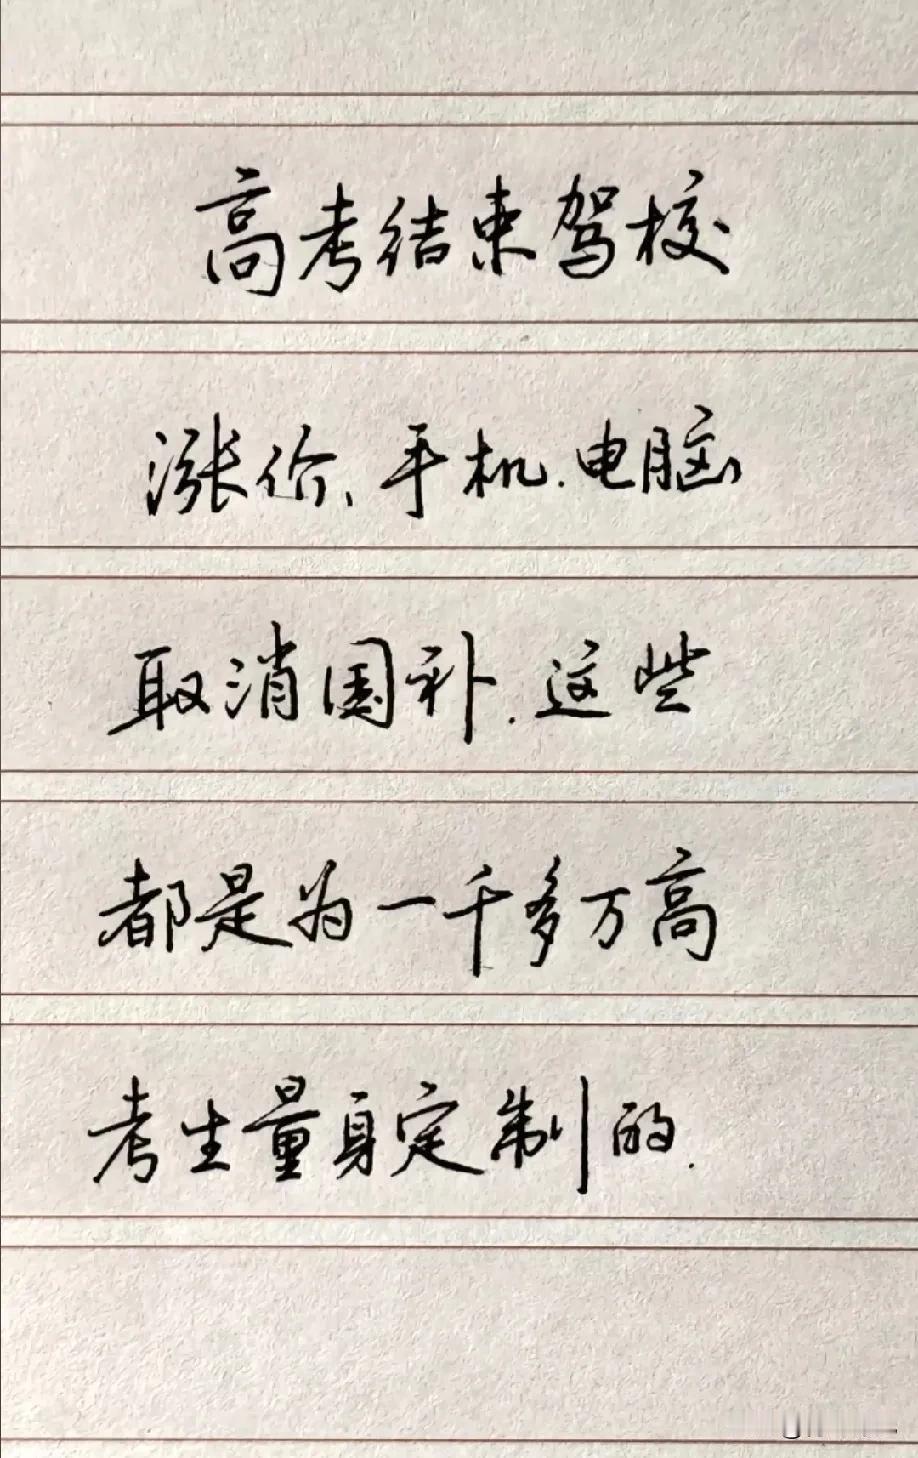 高考结束驾校
涨价、手机.电脑
取消国补.这些
都是为一千多万高
考生量身定制的.